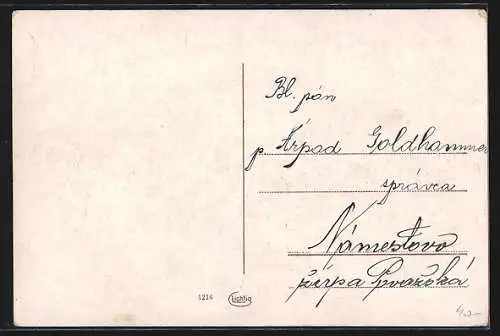 Bl. pán
p. Árpad Goldhammer
správca
Námestovo
župa Považská
1214
Lichtig
40-